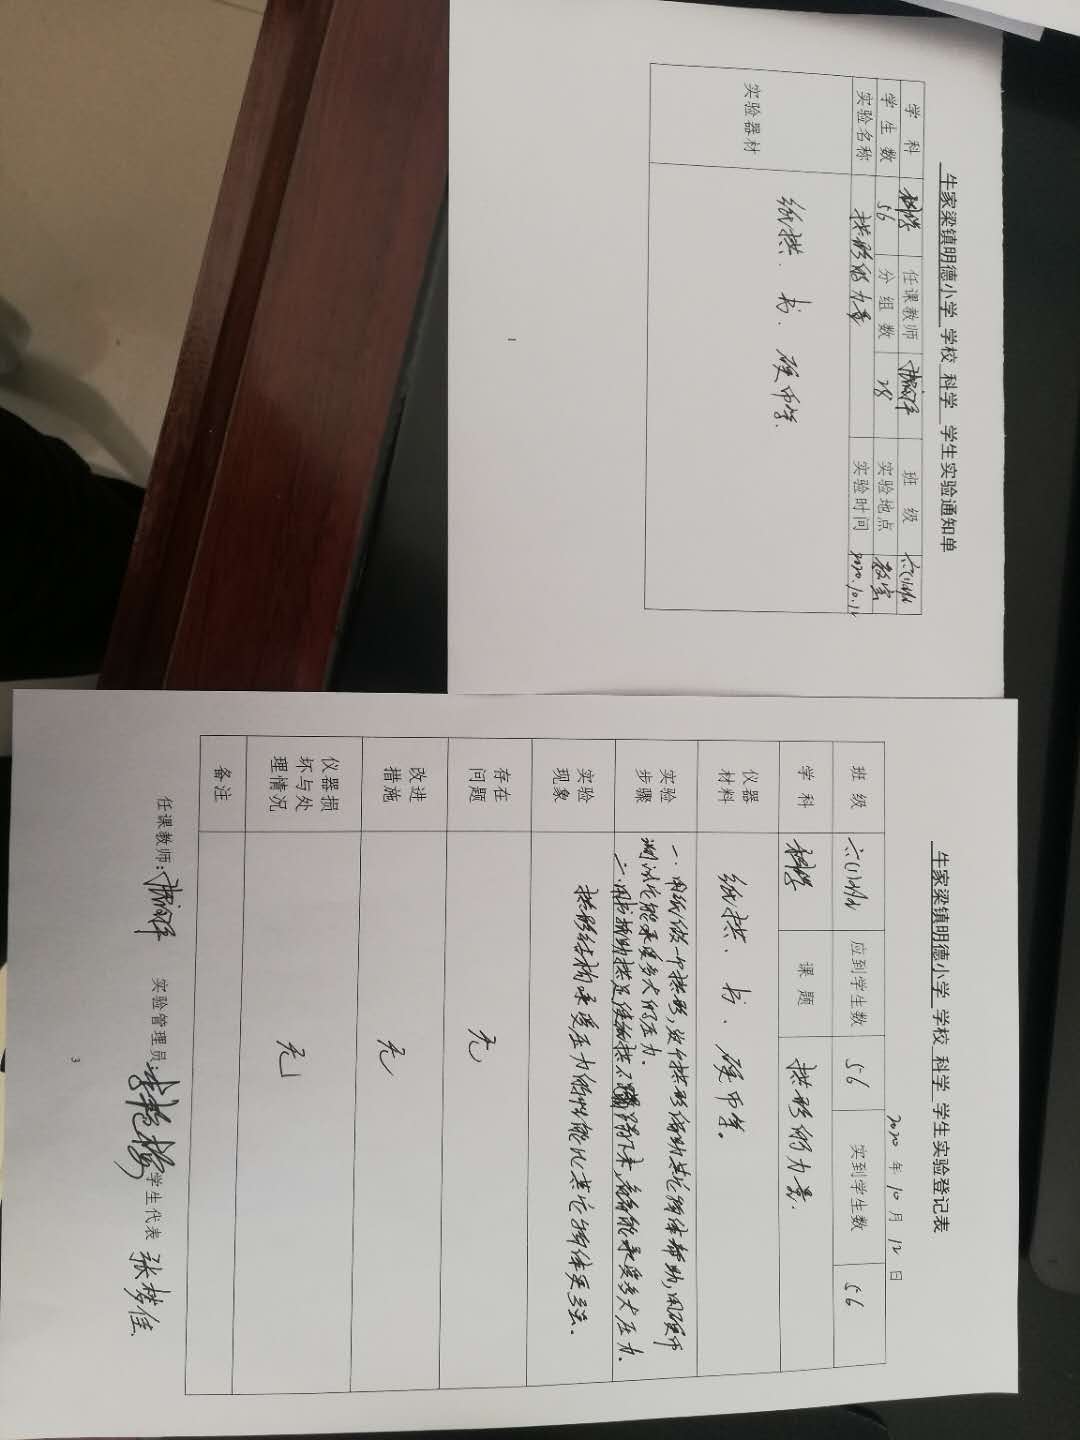 牛家梁镇明德小学 学校 科学 学生实验通知单
学 科 科学 任课教师 班 级 六(1)
学 生 数 56 分 组 数 28 实验地点 教室
实验名称 拱形的力量 实验时间 2020.10.12
实验器材 纸拱. 书. 硬币等.
1
牛家梁镇明德小学 学校 科学 学生实验登记表
2020 年 10 月 12 日
班 级 六(1) 应到学生数 56 实到学生数 56
学 科 科学 课 题 拱形的力量.
仪器
材料 纸拱. 书. 硬币等。
实验
步骤
一.用纸做一个拱形,这个拱形借助其它物体帮助,用硬币
测试它能承受多大的压力.
二.用书抵助拱足使纸拱不,看看能承受多大压力.
实验
现象
拱形结构承受压力的性能比其它物体要强.
存在
问题 无
改进
措施 无
仪器损
坏与处
理情况 无
备注
任课教师: 实验管理员: 学生代表 张梦佳
3